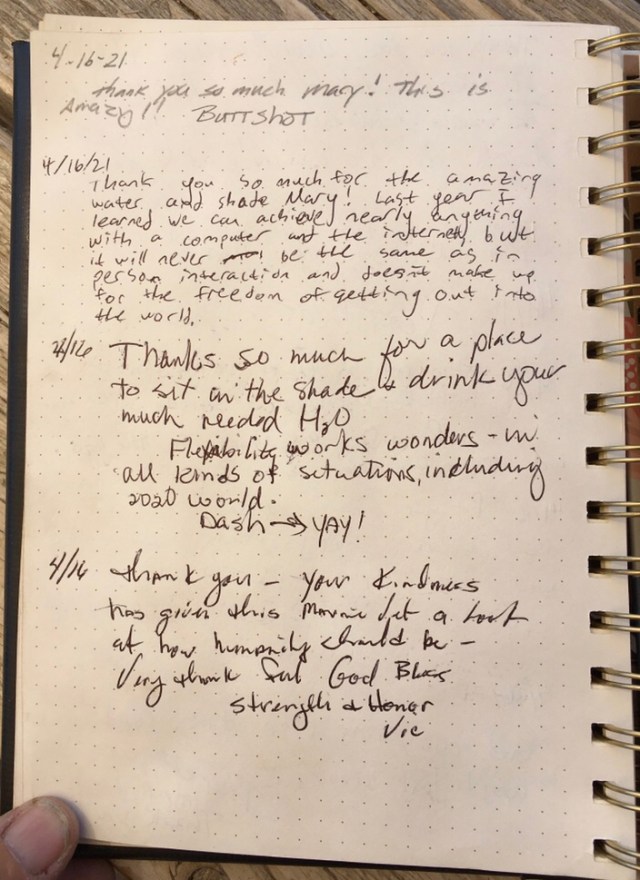 4-16-21
thank you so much mary! This is
Amazg!!
BUTTSHOT
4/16/21
Thank you so much for the amazing
water and shade Mary! Last year I
learned we can achieve nearly anything
with a computer and the internet, but
it will never be the same as in
person interaction and doesn't make up
for the freedom of getting out into
the world.
4/16 Thanks so much for a place
to sit in the shade & drink your
much needed H2O
Flexibility works wonders - in
all kinds of situations, including
2020 world.
Dash → YAY!
4/16 thank you - your Kindness
has given this Marine Vet a look
at how humanity should be -
Very thank ful God Bless
Strength & Honor
Vic